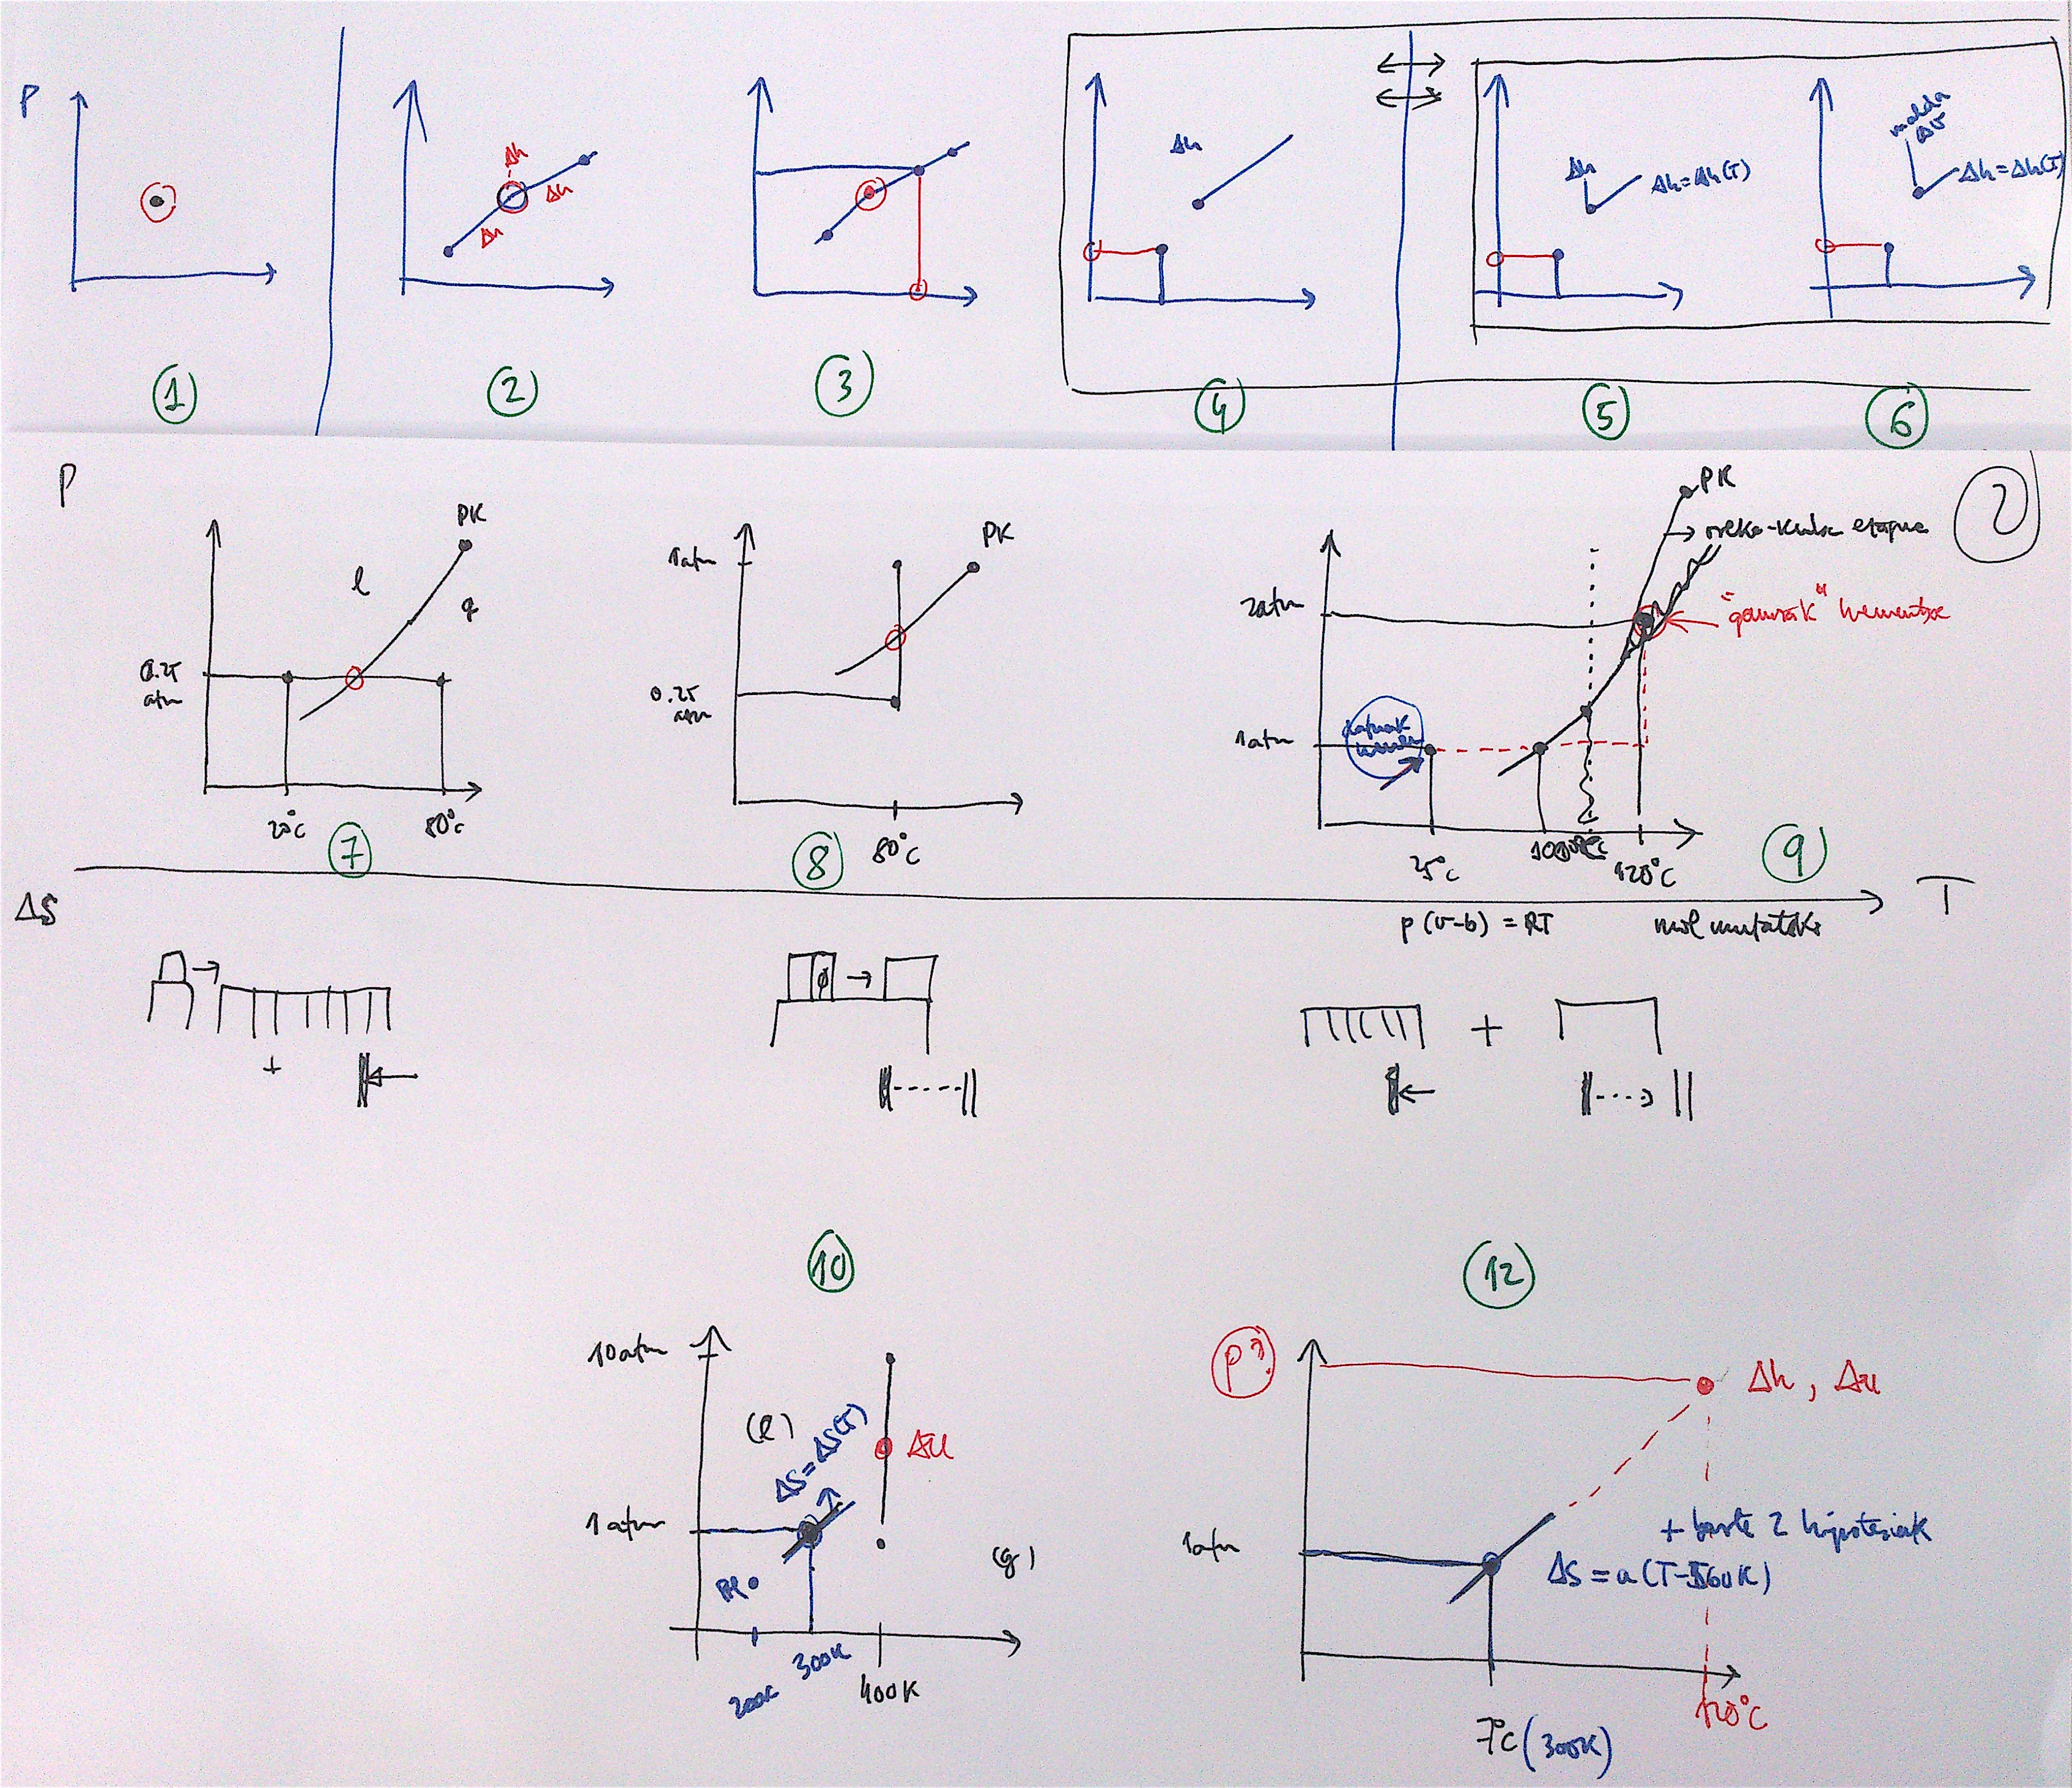 P
Δh
Δh
Δh
Δh
Δh
Δh=Δh(T)
molda
Δh=Δh(T)
1
2
3
4
5
6
P
PK
l
g
0.25
atm
20°C
80°C
7
1atm
PK
0.25
atm
80°C
8
PK
etapue
2
2atm
1atm
25°C
120°C
9
ΔS
T
p(v-b) = RT
+
+
10
12
10atm
(l)
ΔS=ΔS(T)
Δu
1atm
(g)
200K
300K
400K
P?
Δh, Δu
1atm
+ beste 2 hipotesiak
ΔS = a(T-560K)
7°C (300K)
120°C